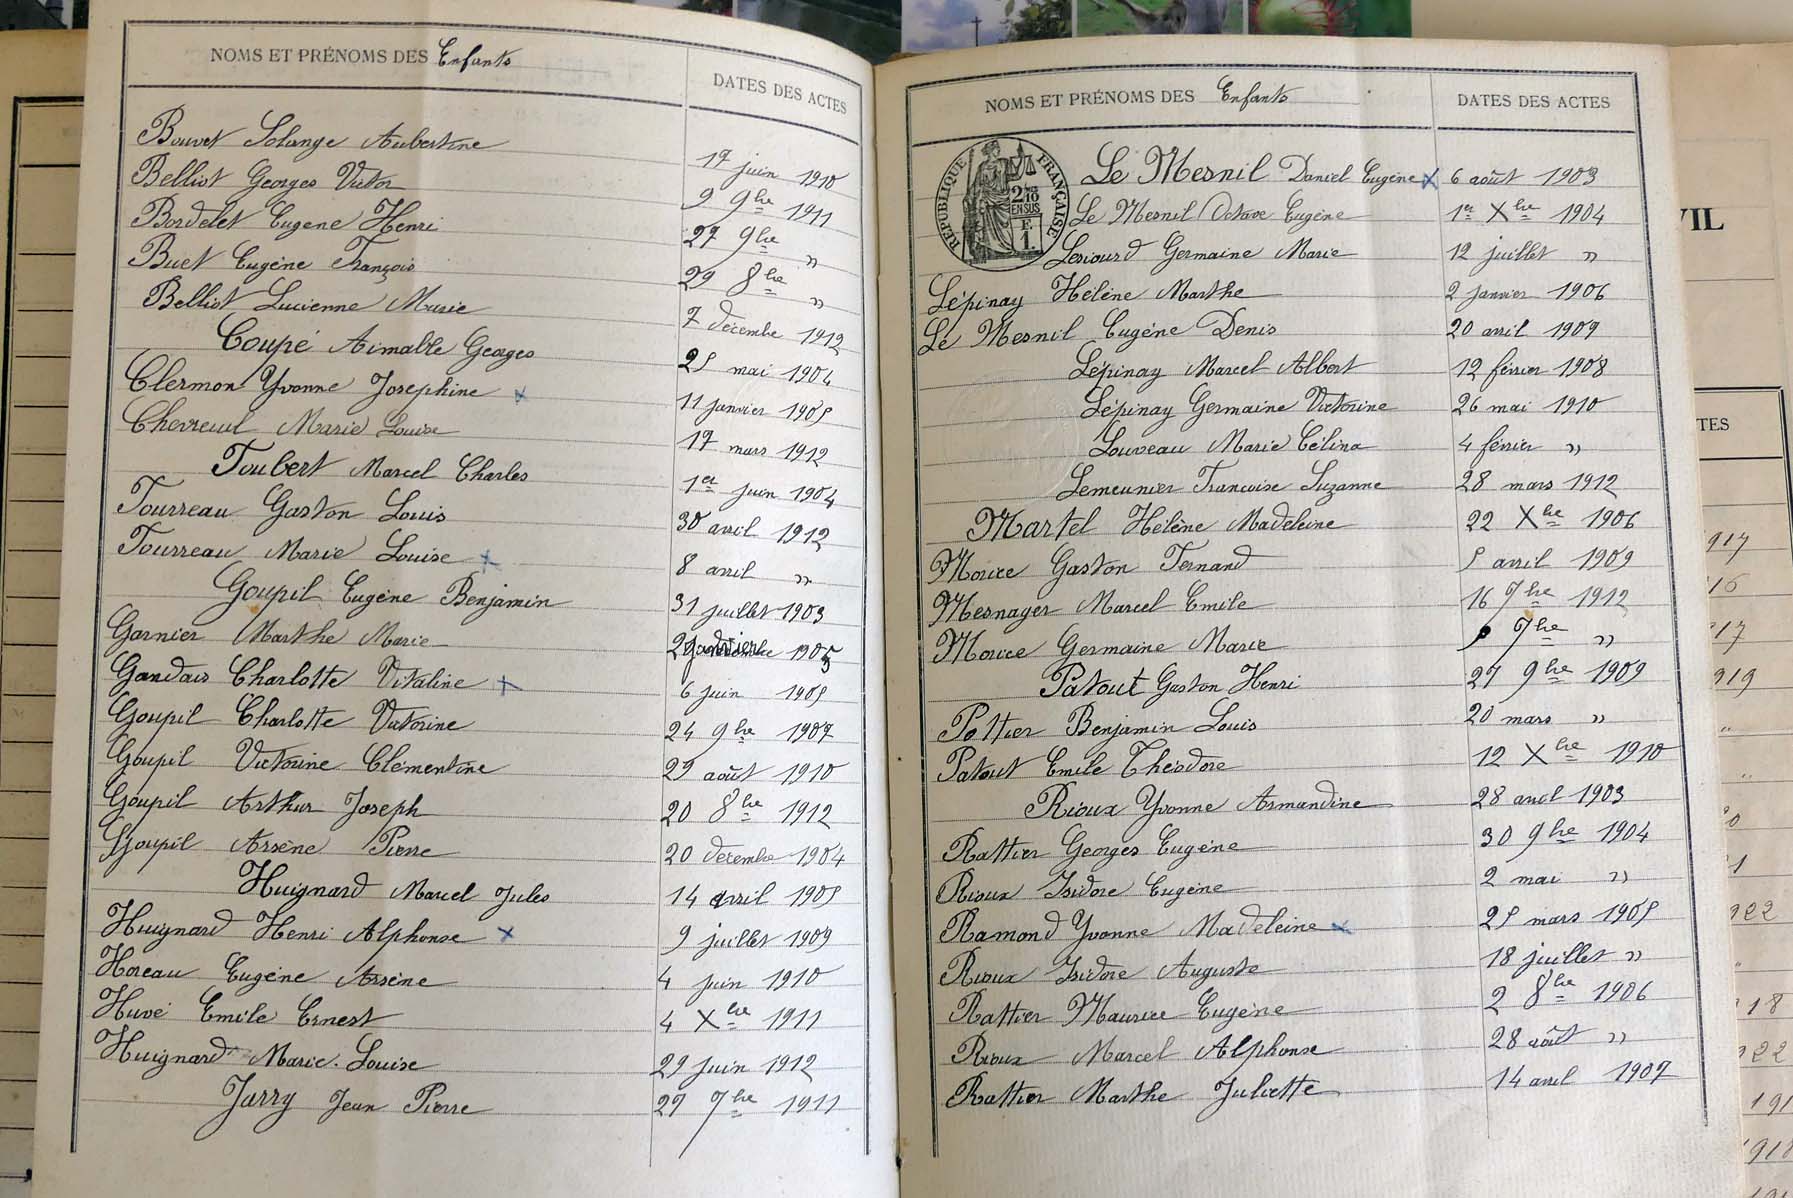 NOMS ET PRÉNOMS DES Enfants DATES DES ACTES
Bouvet Solange Aubertine 17 juin 1910
Belliot Georges Victor 9 9bre 1911
Bordelet Eugène Henri 27 9bre "
Buet Eugène François 29 8bre "
Belliot Lucienne Marie 7 décembre 1912
Coupé Aimable Georges 25 mai 1904
Clermon Yvonne Joséphine x 11 janvier 1905
Chevreul Marie Louise 17 mars 1912
Foubert Marcel Charles 1er juin 1904
Fourreau Gaston Louis 30 avril 1912
Fourreau Marie Louise x 8 avril "
Goupil Eugène Benjamin 31 juillet 1903
Garnier Marthe Marie janvier 1905
Gandais Charlotte Vitaline x 6 juin 1905
Goupil Charlotte Victorine 24 9bre 1907
Goupil Victorine Clémentine 29 août 1910
Goupil Arthur Joseph 20 8bre 1912
Goupil Arsène Pierre 20 décembre 1904
Huignard Marcel Jules 14 avril 1905
Huignard Henri Alphonse x 9 juillet 1909
Horeau Eugène Arsène 4 juin 1910
Huvé Emile Ernest 4 Xbre 1911
Huignard Marie-Louise 29 juin 1912
Jarry Jean Pierre 27 7bre 1911
NOMS ET PRÉNOMS DES Enfants DATES DES ACTES
RÉPUBLIQUE FRANÇAISE
2/10 EN SUS
F. 1.
Le Mesnil Daniel Eugène x 6 août 1903
Le Mesnil Octave Eugène 1er Xbre 1904
Leriourd Germaine Marie 12 juillet "
Lépinay Hélène Marthe 2 janvier 1906
Le Mesnil Eugène Denis 20 avril 1909
Lépinay Marcel Albert 12 février 1908
Lépinay Germaine Victorine 26 mai 1910
Louveau Marie Célina 4 février "
Lemeunier Françoise Suzanne 28 mars 1912
Martel Hélène Madeleine 22 Xbre 1906
Morice Gaston Fernand 5 avril 1909
Mesnager Marcel Emile 16 7bre 1912
Morice Germaine Marie 7bre "
Patout Gaston Henri 27 9bre 1909
Pottier Benjamin Louis 20 mars "
Patout Emile Théodore 12 Xbre 1910
Rioux Yvonne Armandine 28 avril 1903
Rattier Georges Eugène 30 9bre 1904
Rioux Isidore Eugène 2 mai "
Ramond Yvonne Madeleine x 25 mars 1905
Rioux Isidore Auguste 18 juillet "
Rattier Maurice Eugène 2 8bre 1906
Rioux Marcel Alphonse 28 août "
Rattier Marthe Juliette 14 avril 1907
VIL
TES
917
16
17
919
922
18
922
191